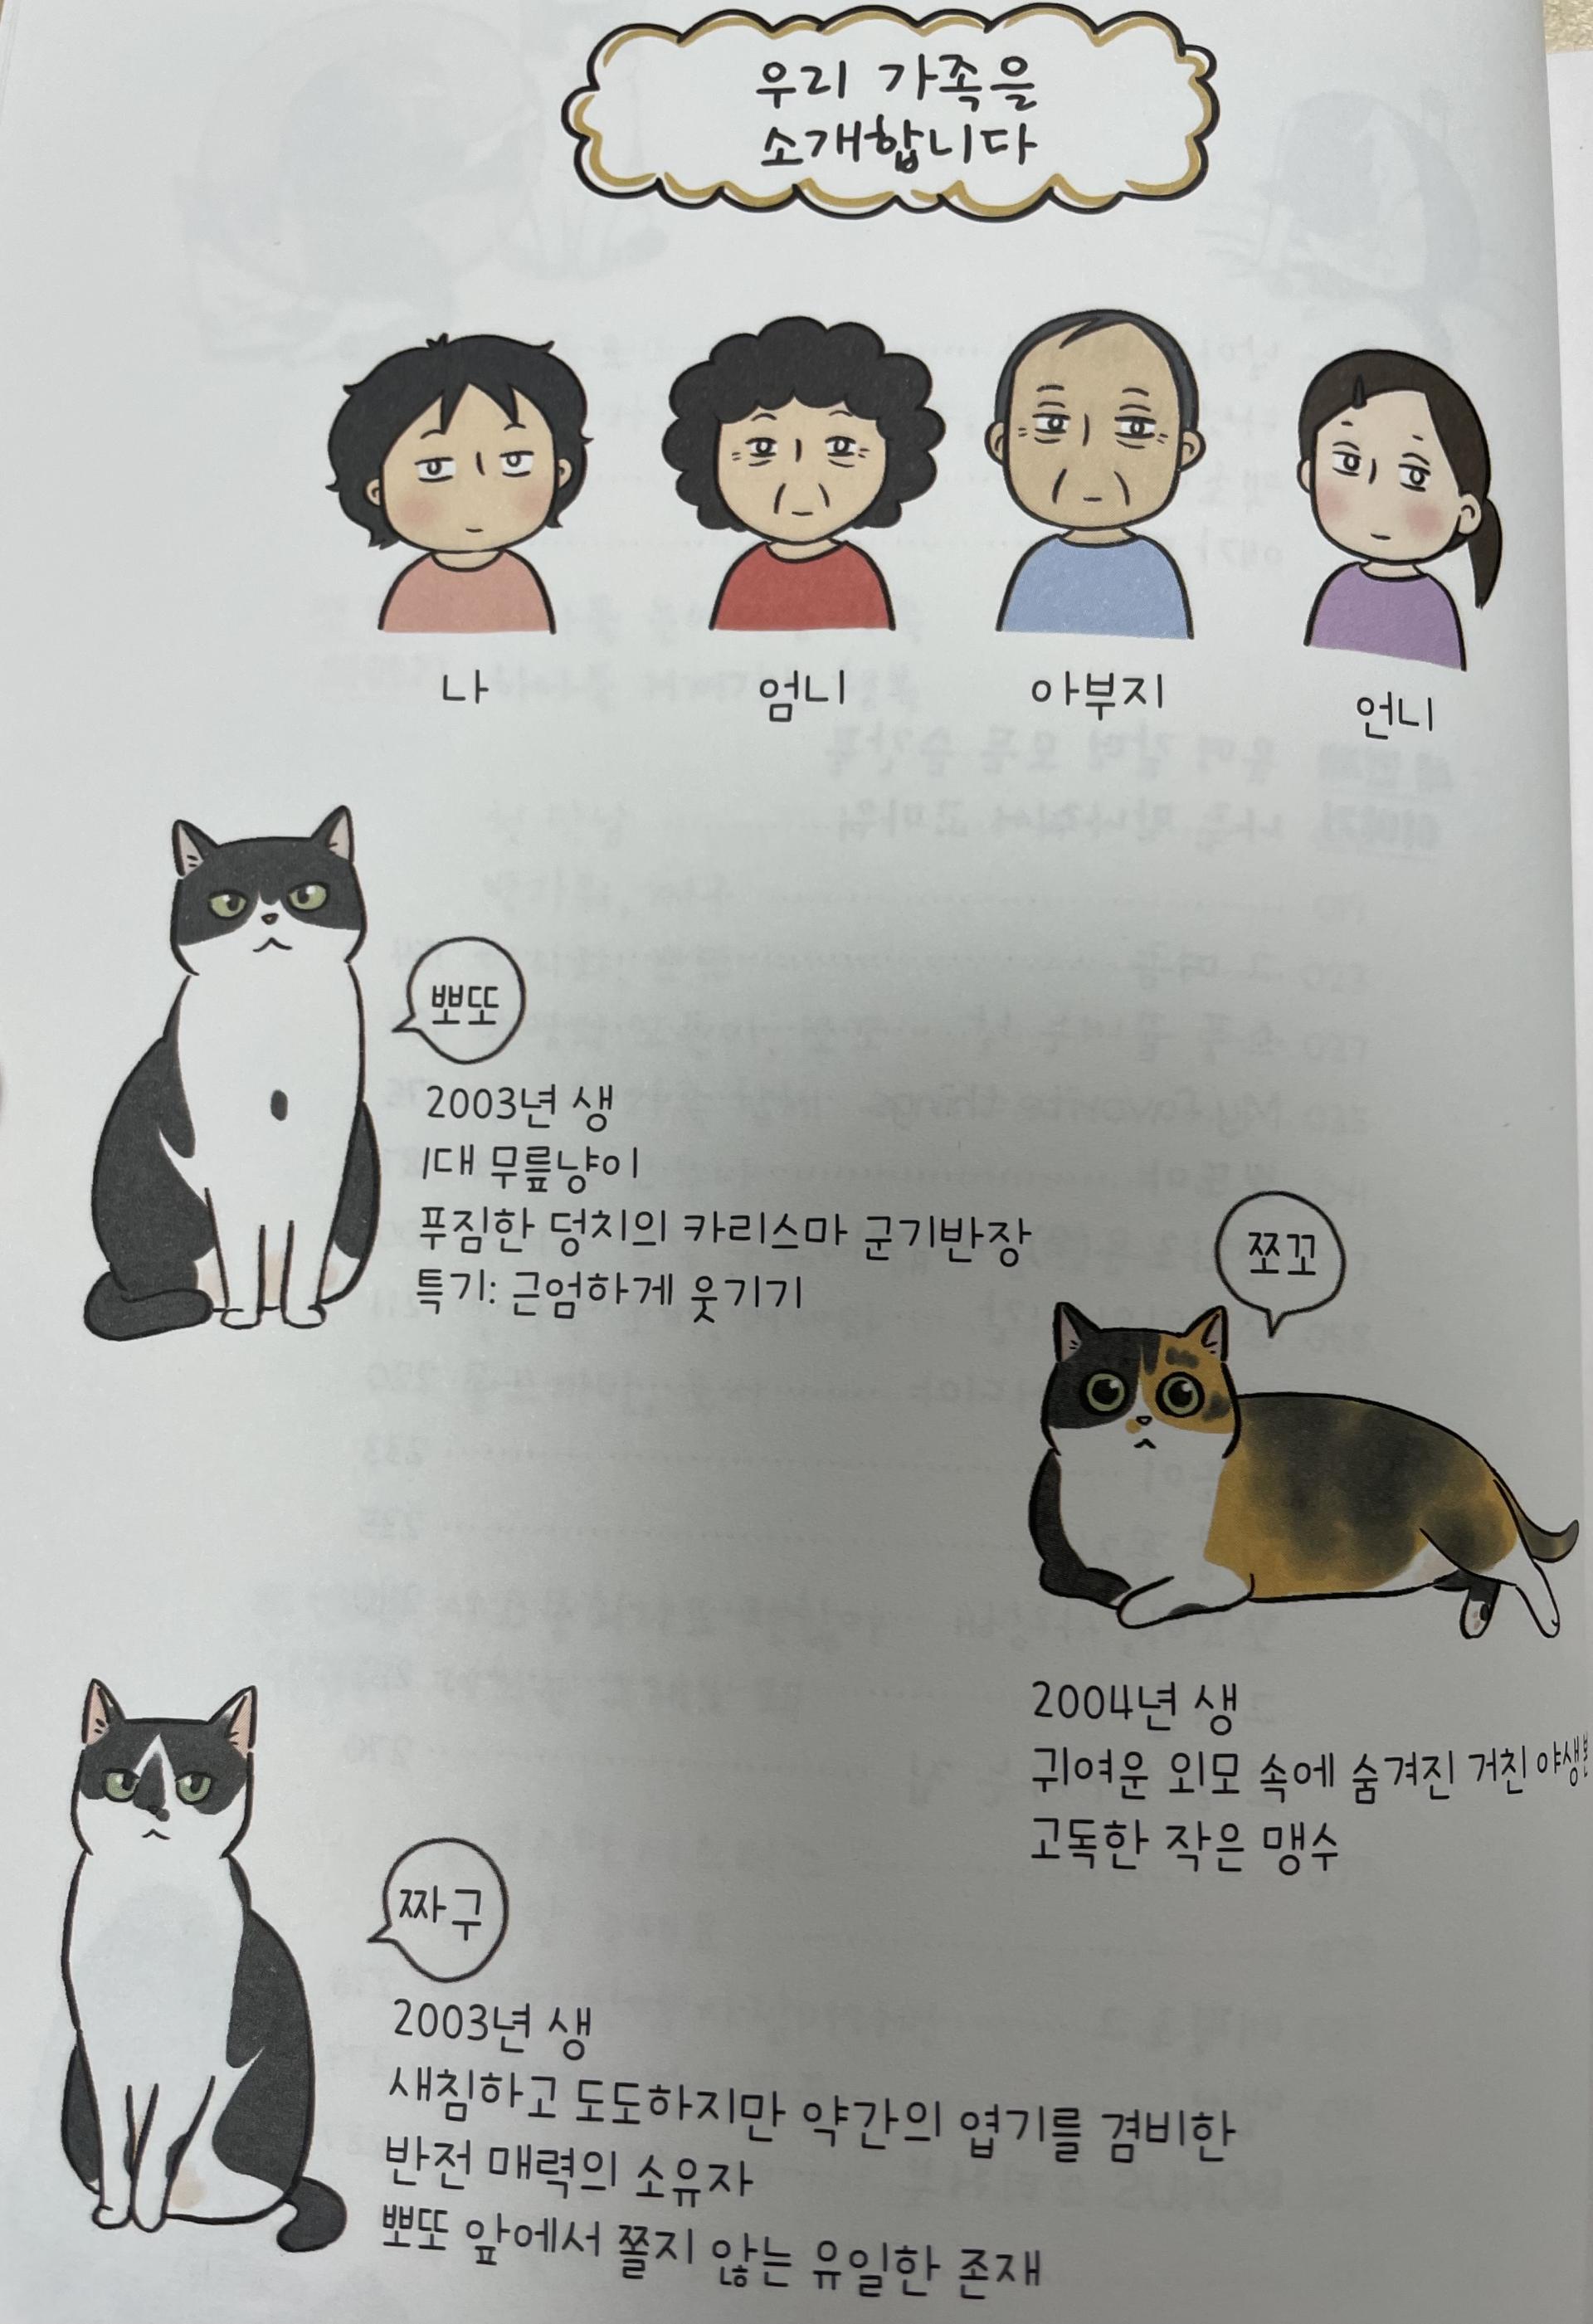 우리 가족을
소개합니다
나
엄니
아부지
언니
뽀또
2003년 생
1대 무릎냥이
푸짐한 덩치의 카리스마 군기반장
특기: 근엄하게 웃기기
쪼꼬
2004년 생
귀여운 외모 속에 숨겨진 거친
고독한 작은 맹수
짜구
2003년 생
새침하고 도도하지만 약간의 엽기를 겸비한
반전 매력의 소유자
뽀또 앞에서 쫄지 않는 유일한 존재